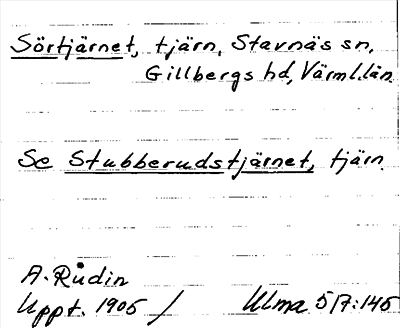 Sörtjärnet, tjärn, Stavnäs sn,
Gillbergs hd, Värml.län.
Se Stubberudstjärnet, tjärn.
A. Rudin
Uppt. 1905 / Ulma 517:145